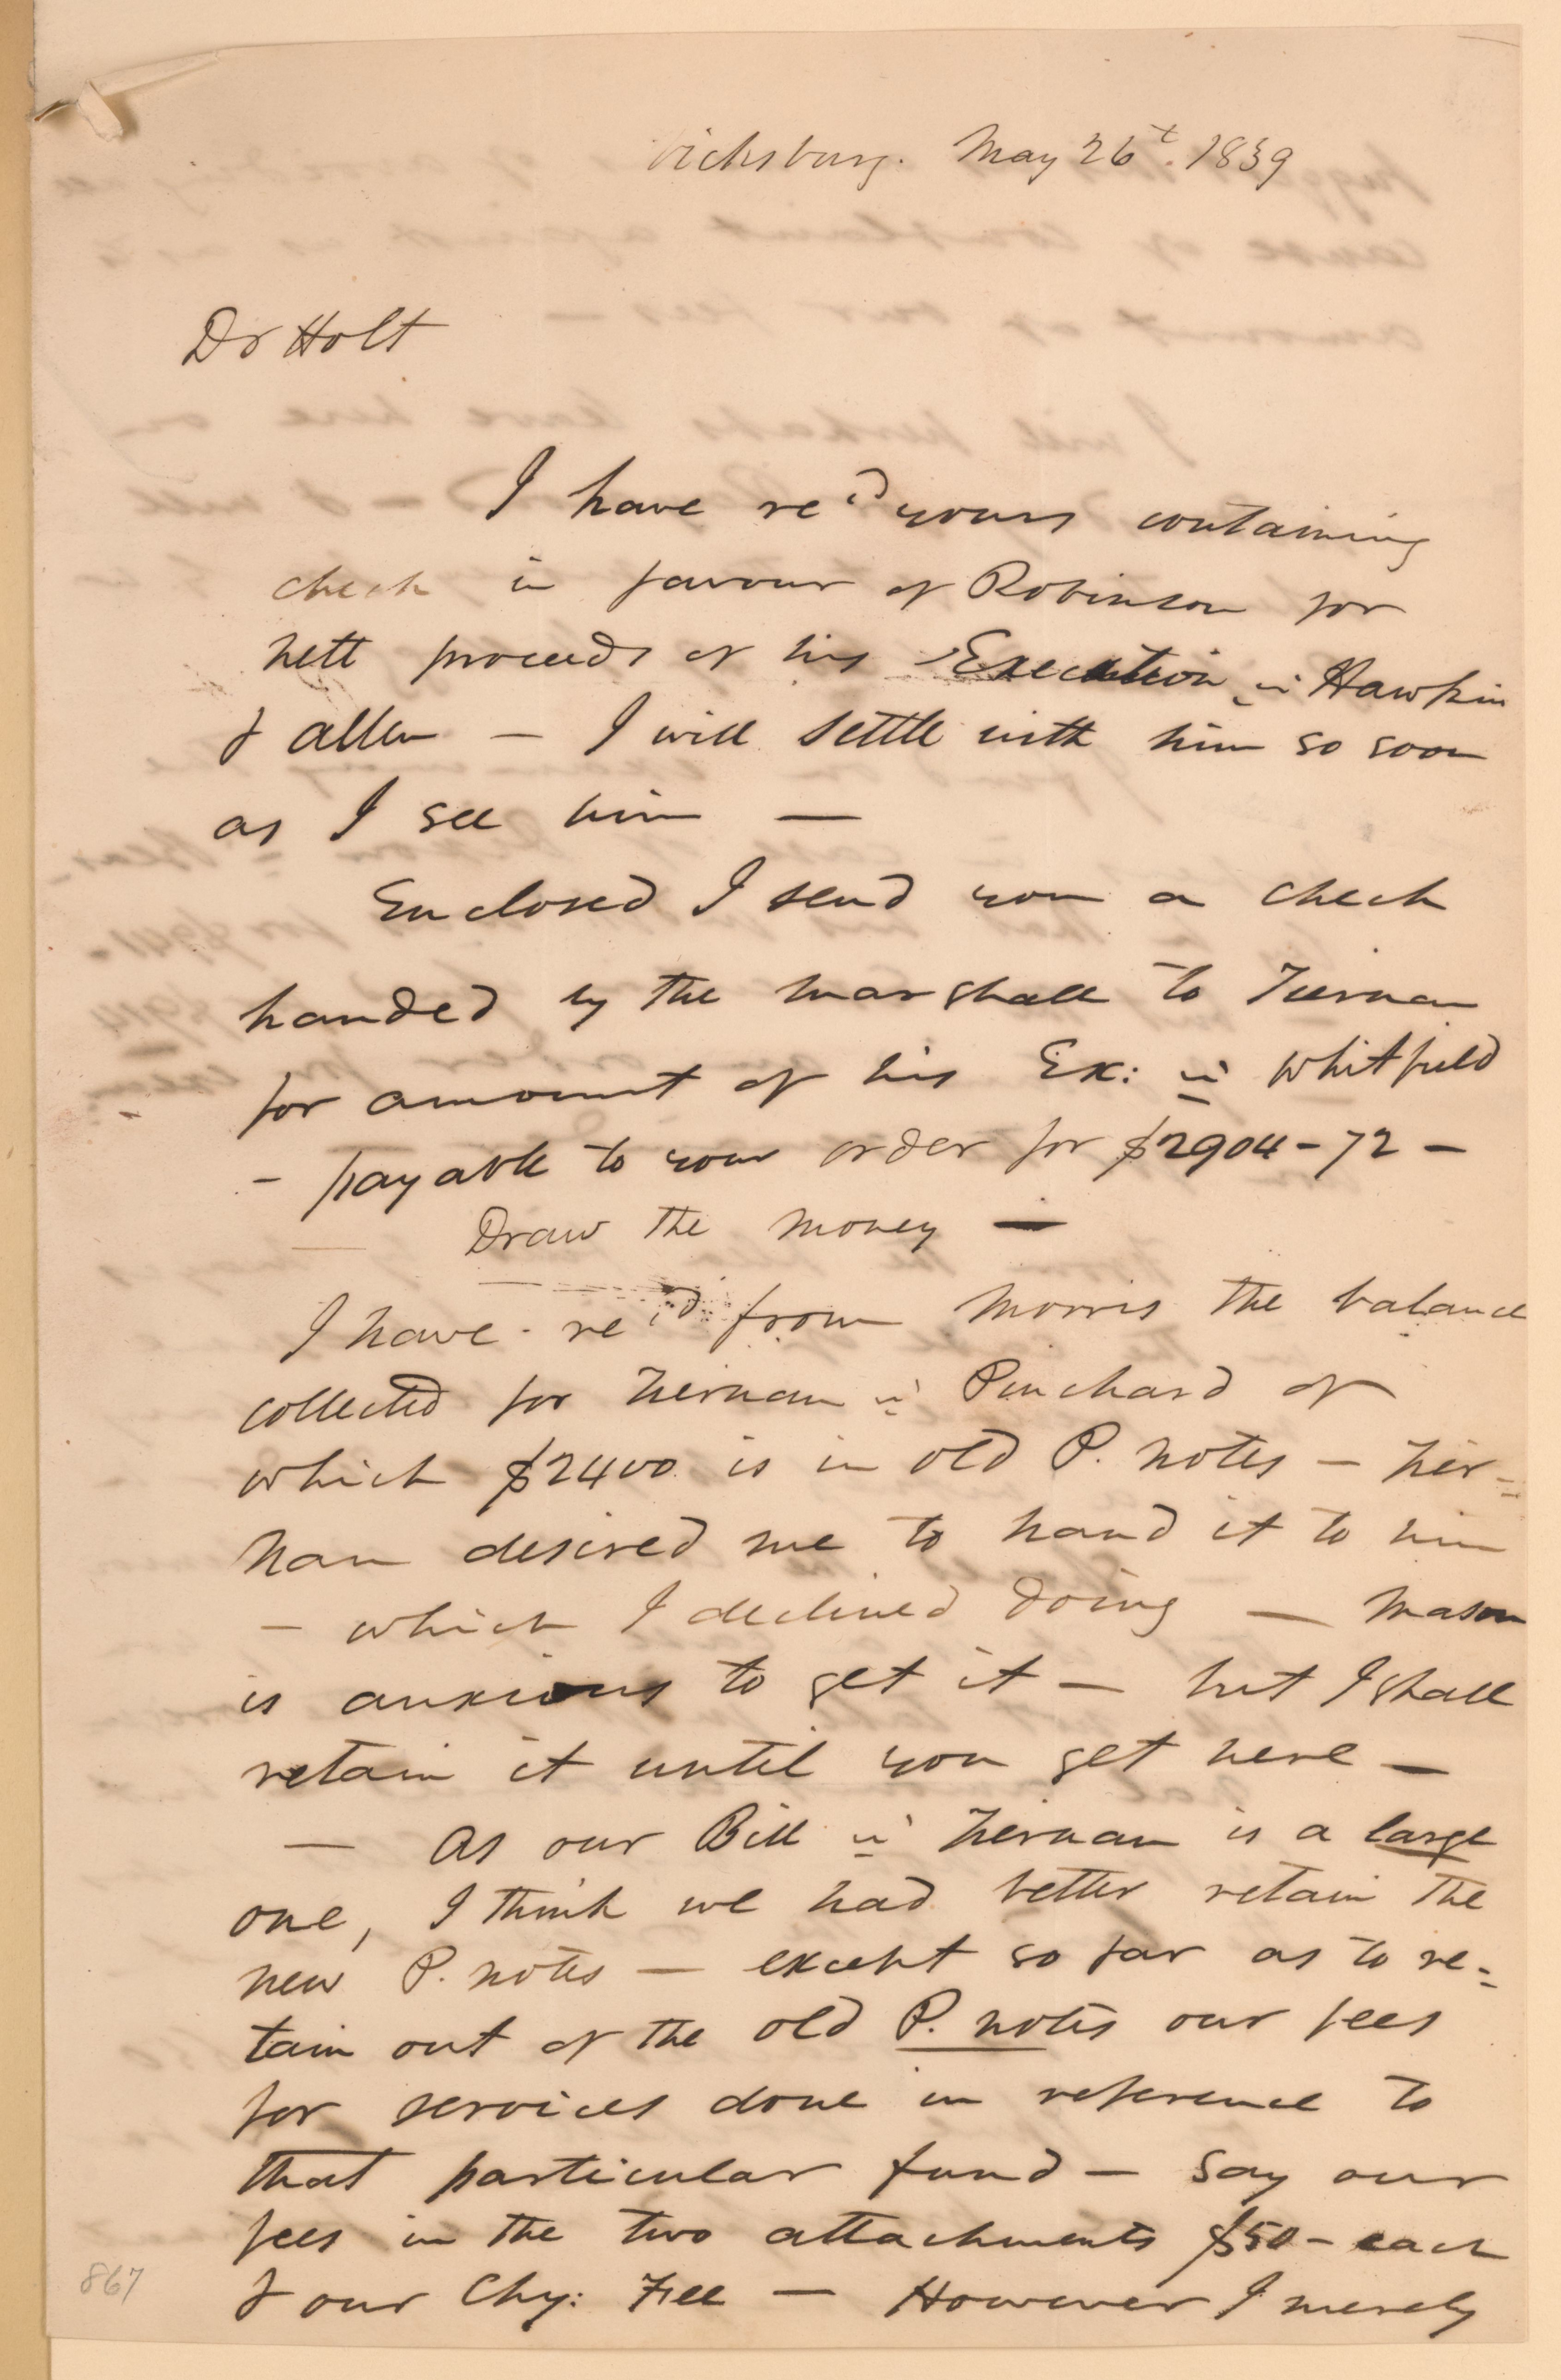 Vicksburg. May 26t. 1839
Dr Holt
I have re'd yours containing
check in favour of Robinson for
nett proceeds of his Execution in Hawkin
& Allen — I will settle with him so soon
as I see him —
Enclosed I send you a check
handed by the Marshall to Tiernan
for amount of his Ex: in Whitfield
— payable to your order for $2904-72 —
Draw the money —
I have re'd from Morris the balance
collected for Tiernan in Pinchard of
which $2400 is in old P. notes — Tier-
nan desired me to hand it to him
— which I declined doing — Mason
is anxious to get it — but I shall
retain it until you get here —
— As our Bill in Tiernan is a large
one, I think we had better retain the
new P. notes — except so far as to re-
tain out of the old P. notes our fees
for services done in reference to
that particular fund — say our
fees in the two attachments $50 - each
& our Chy: Fee — However I merely
867